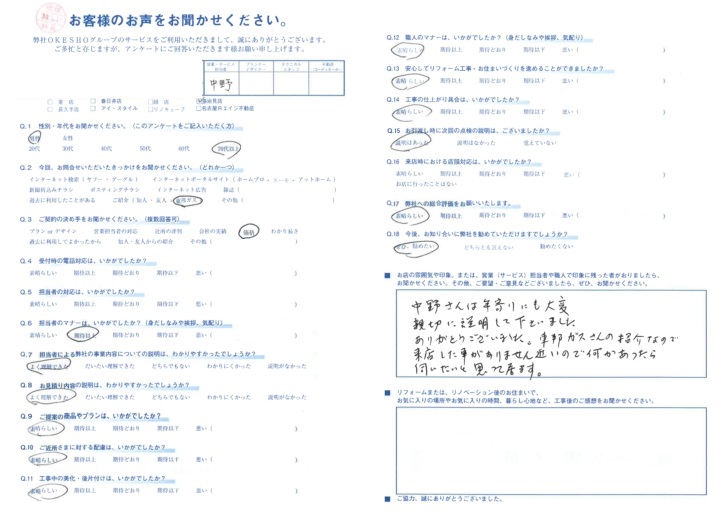 お客様のお声をお聞かせください。
弊社OKESHOグループのサービスをご利用いただきまして、誠にありがとうございます。
ご多忙と存じますが、アンケートにご回答いただきます様お願い申し上げます。
中野
東店
春日井店
緑店
長久手店
アイ・スタイル
リノキューブ
名古屋ウエイン不動産
Q.1 性別・年代をお聞かせください。(このアンケートをご記入いただく方)
男性 女性
20代 30代 40代 50代 60代 70代以上
Q.2 今回、お問合せいただいたきっかけをお聞かせください。(どれか一つ)
インターネット検索(ヤフー・グーグル) インターネットポータルサイト(ホームプロ・ ・アットホーム)
新聞折込みチラシ ポスティングチラシ インターネット広告 雑誌( )
過去に利用したことがある ご紹介(知人・友人・東邦ガス) その他( )
Q.3 ご契約の決め手をお聞かせください。(複数回答可)
プラン or デザイン 営業担当者の対応 近所の評判 会社の実績 価格 わかり易さ
過去に利用してよかったから 知人・友人からの紹介 その他( )
Q.4 受付時の電話対応は、いかがでしたか?
素晴らしい 期待以上 期待どおり 期待以下 悪い( )
Q.5 担当者の対応は、いかがでしたか?
素晴らしい 期待以上 期待どおり 期待以下 悪い( )
Q.6 担当者のマナーは、いかがでしたか?(身だしなみや挨拶、気配り)
素晴らしい 期待以上 期待どおり 期待以下 悪い( )
Q.7 担当者による弊社の事業内容についての説明は、わかりやすかったでしょうか?
よく理解できた だいたい理解できた どちらでもない わかりにくかった 説明がなかった
Q.8 お見積り内容の説明は、わかりやすかったでしょうか?
よく理解できた だいたい理解できた どちらでもない わかりにくかった 説明がなかった
Q.9 ご提案の商品やプランは、いかがでしたか?
素晴らしい 期待以上 期待どおり 期待以下 悪い( )
Q.10 ご近所さまに対する配慮は、いかがでしたか?
素晴らしい 期待以上 期待どおり 期待以下 悪い( )
Q.11 工事中の美化・後片付けは、いかがでしたか?
素晴らしい 期待以上 期待どおり 期待以下 悪い( )
Q.12 職人のマナーは、いかがでしたか?(身だしなみや挨拶、気配り)
素晴らしい 期待以上 期待どおり 期待以下 悪い( )
Q.13 安心してリフォーム工事・お住まいづくりを進めることができましたか?
素晴らしい 期待以上 期待どおり 期待以下 悪い( )
Q.14 工事の仕上がり具合は、いかがでしたか?
素晴らしい 期待以上 期待どおり 期待以下 悪い( )
Q.15 お引渡し時に次回の点検の説明は、ございましたか?
説明はあった 説明はなかった 覚えていない
Q.16 来店時における店頭対応は、いかがでしたか?
素晴らしい 期待以上 期待どおり 期待以下 悪い( )
お店に行ったことはない
Q.17 弊社への総合評価をお願いいたします。
素晴らしい 期待以上 期待どおり 期待以下 悪い( )
Q.18 今後、お知り合いに弊社を勧めていただけますでしょうか?
ぜひ、勧めたい どちらとも言えない 勧めたくない
■ お店の雰囲気や印象、または、営業(サービス)担当者や職人で印象に残った者がおりましたら、
お聞かせください。その他、ご要望・ご意見などございましたら、ぜひ、お聞かせください。
中野さんは年寄りにも大変
親切に説明して下さいました
ありがとうございました。東邦ガスさんの紹介なので
来店した事がありません近いので何かあったら
伺いたいと思って居ます。
■ リフォームまたは、リノベーション後のお住まいで、
お気に入りの場所やお気に入りの時間、暮らし心地など、工事後のご感想をお聞かせください。
■ ご協力、誠にありがとうございました。